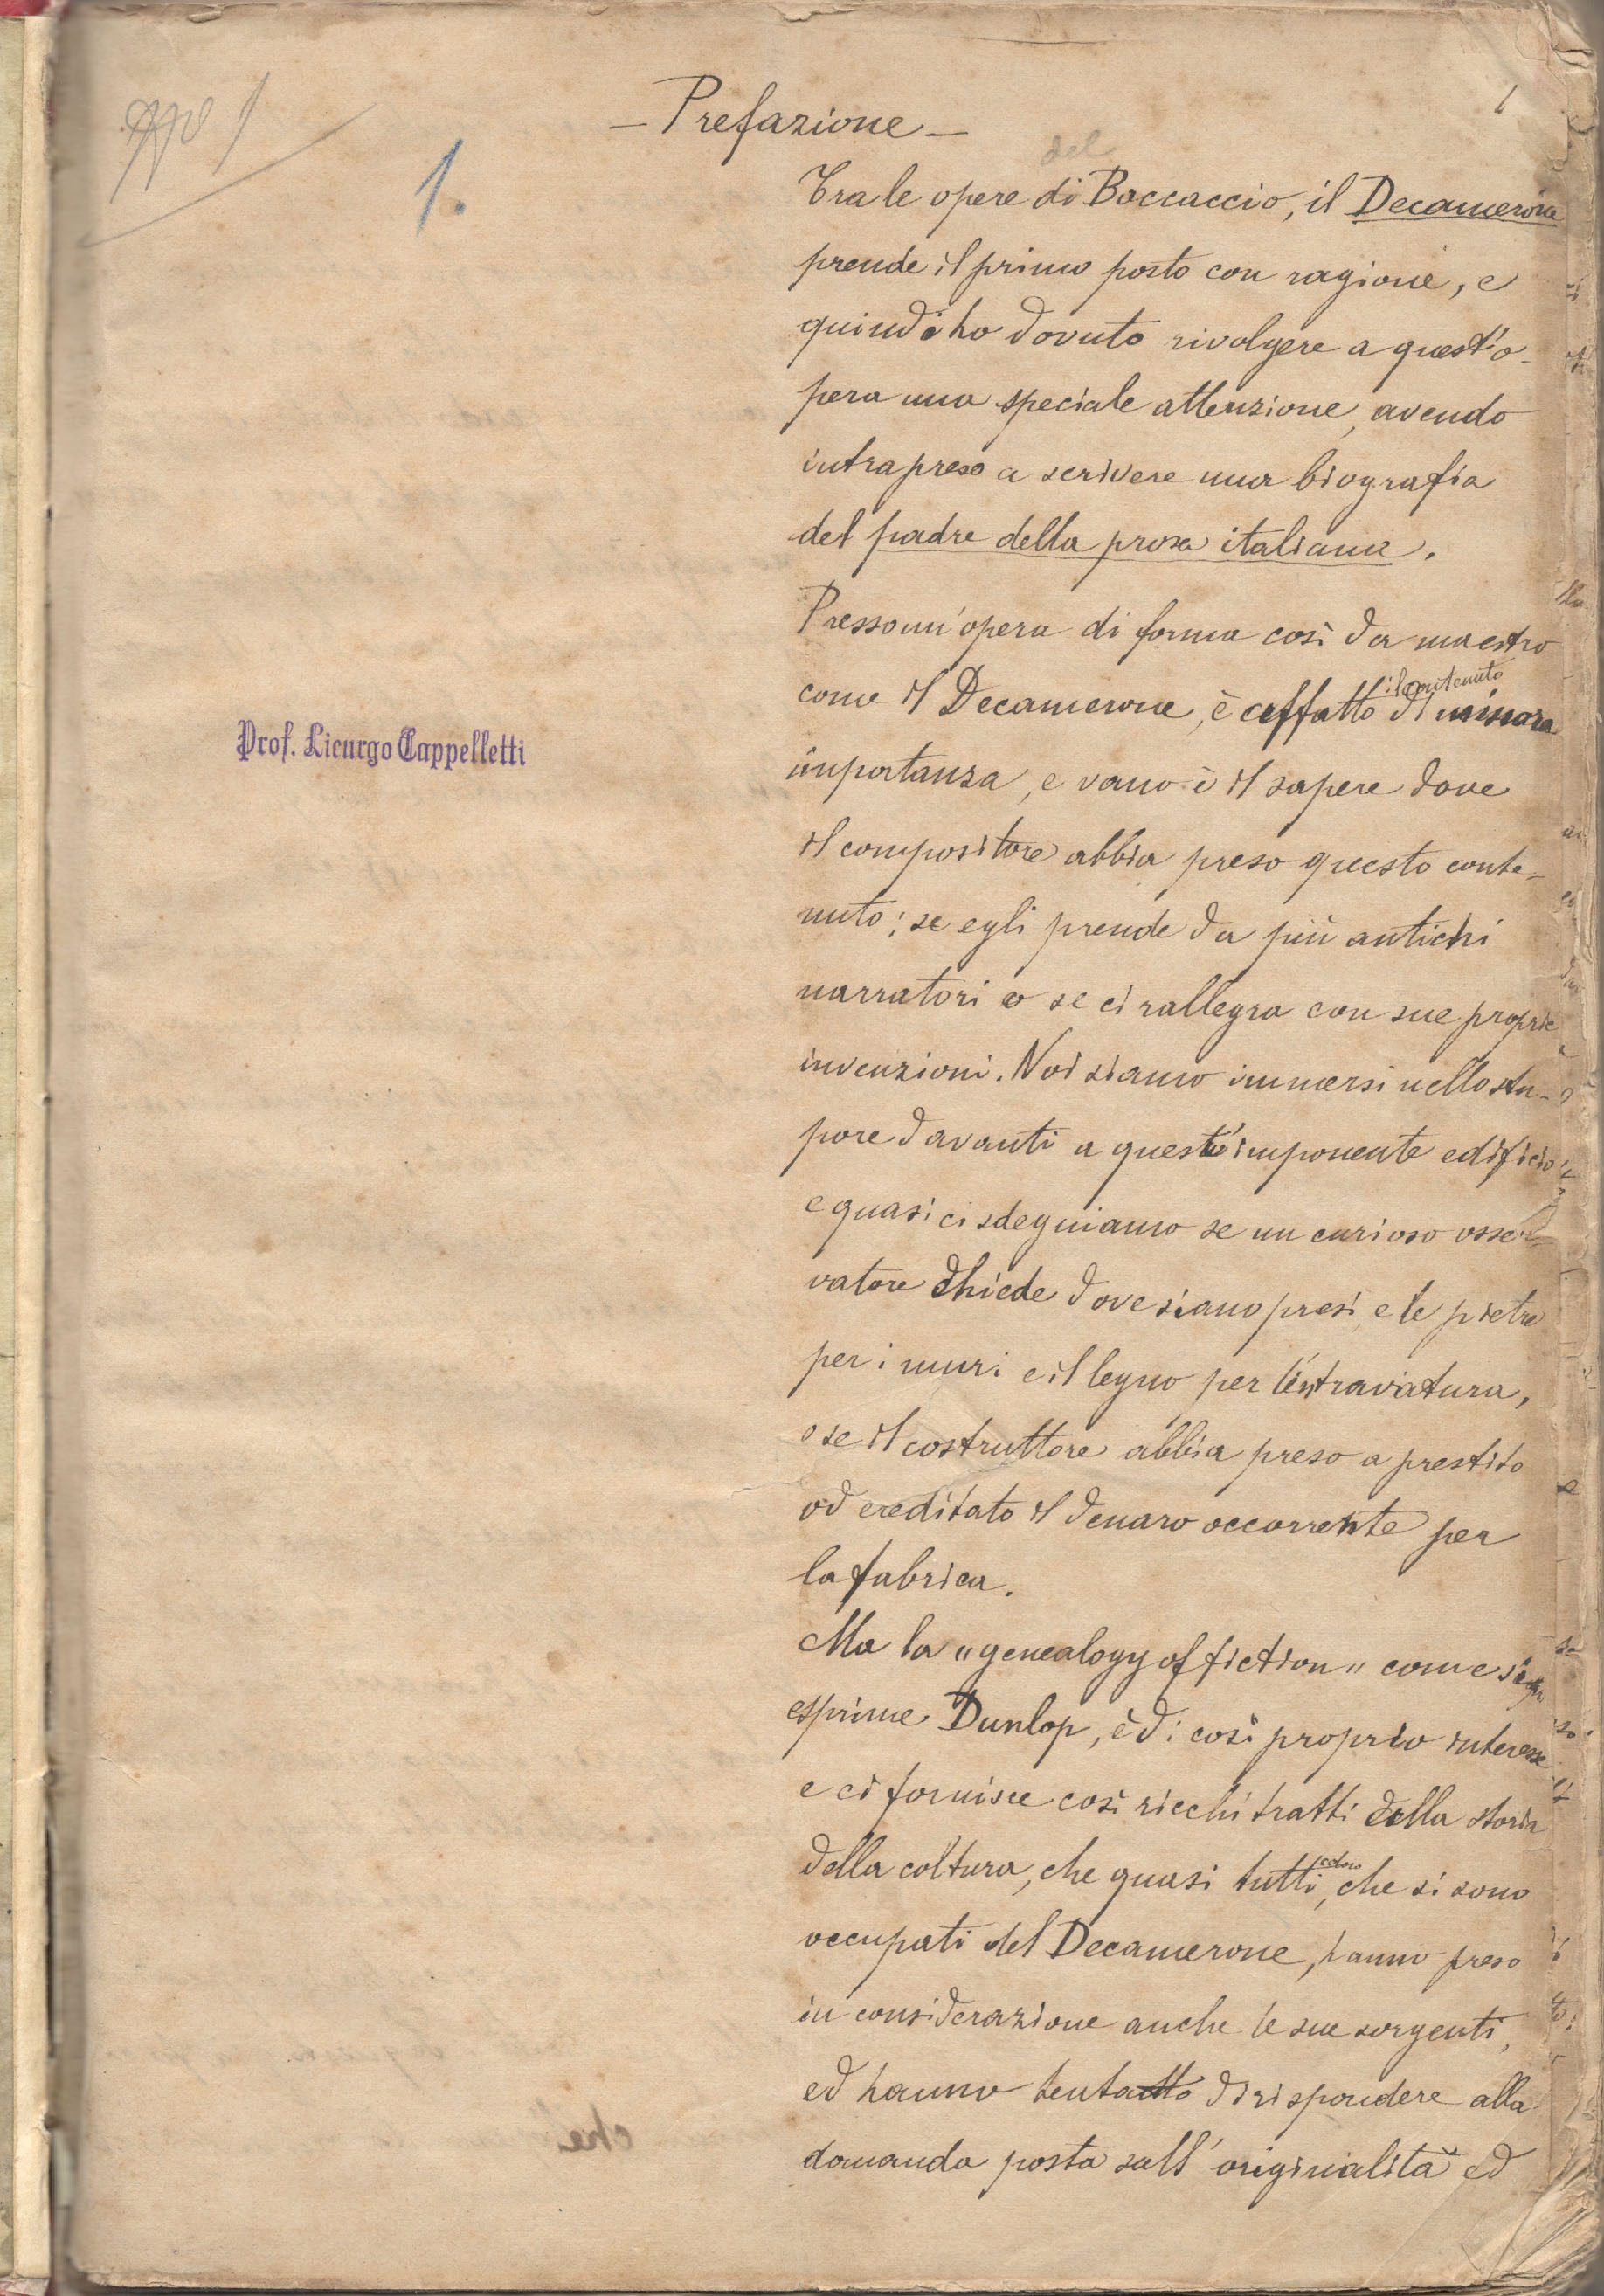 1
— Prefazione —
1.
del
Tra le opere di Boccaccio, il Decamerone
prende il primo posto con ragione, e
quindi ho dovuto rivolgere a quest'o-
pera una speciale attenzione, avendo
intrapreso a scrivere una biografia
del padre della prosa italiana.
Presso un'opera di forma così da maestro
il contenuto
come il Decamerone, è affatto di minora
importanza, e vano è il sapere dove
il compositore abbia preso questo conte-
nuto; se egli prende da più antichi
narratori o se ci rallegra con sue proprie
invenzioni. Noi siamo immersi nello stu-
pore davanti a quest'imponente edificio
e quasi ci sdegniamo se un curioso osser-
vatore chiede dove siano presi e le pietre
per i muri e il legno per l'intravatura,
o se il costruttore abbia preso a prestito
od ereditato il denaro occorrente per
la fabrica.
Ma la "genealogy of fiction" come si
esprime Dunlop, è di così proprio interesse
e ci fornisce così ricchi tratti della storia
coloro
della coltura, che quasi tutti, che si sono
occupati del Decamerone, hanno preso
in considerazione anche le sue sorgenti,
ed hanno tentatto di rispondere alla
domanda posta sull'originalità ed
Prof. Licurgo Cappelletti